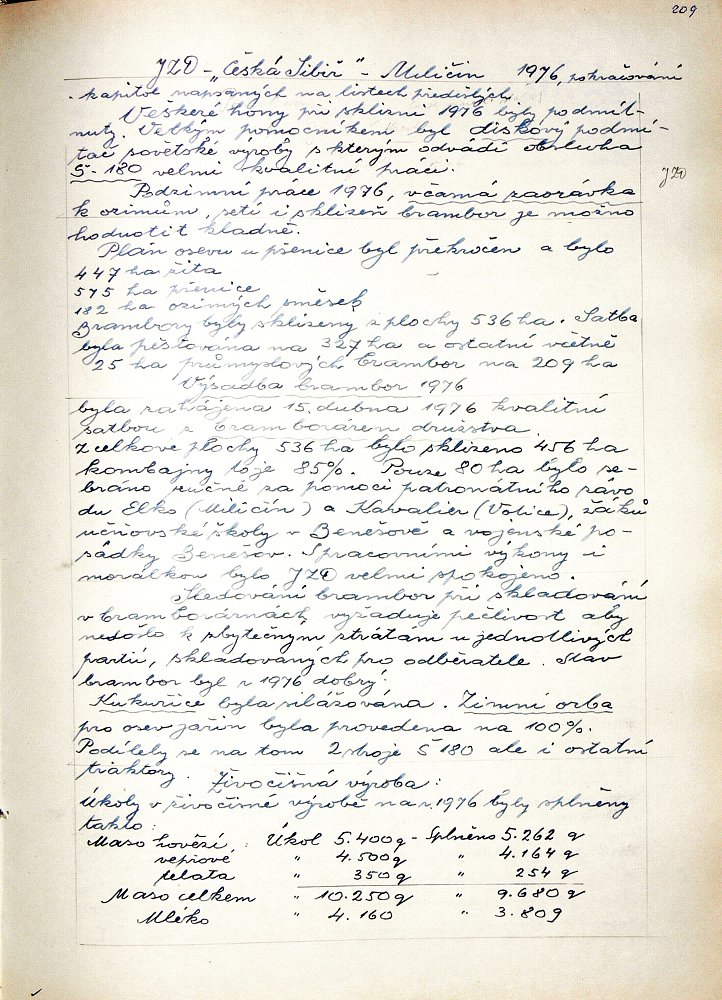 209
JZD - „Česká Sibiř" - Miličín 1976, pokračování
kapitol napsaných na listech předešlých.
Veškeré hony při sklizni 1976 byly podmít-
nuty. Velkým pomocníkem byl diskový podmí-
tač sovětské výroby s kterým odvádí obsluha
Š-180 velmi kvalitní práci.
JZD
Podzimní práce 1976, včasná zaorávka
k ozimům, setí i sklizeň brambor je možno
hodnotit kladně.
Plán osevu u pšenice byl překročen a bylo
447 ha žita
575 ha pšenice
182 ha ozimých směsek
Brambory byly sklizeny z plochy 536 ha. Satba
byla pěstována na 327 ha a ostatní včetně
25 ha průmyslových brambor na 209 ha
Výsadba brambor 1976
byla zahájena 15. dubna 1976 kvalitní
satbou z bramboráren družstva.
Z celkové plochy 536 ha bylo sklizeno 456 ha
kombajny to je 85%. Pouze 80 ha bylo se-
bráno ručně za pomoci patronátního závo
du Elko (Miličín) a Kavalier (Votice), žáků
učňovské školy v Benešově a vojenské po-
sádky Benešov. S pracovními výkony i
morálkou bylo JZD velmi spokojeno.
Sledování brambor při skladování
v bramborárnách vyžaduje pečlivost aby
nedošlo k zbytečným ztrátám u jednotlivých
partií, skladovaných pro odběratele. Stav
brambor byl r 1976 dobrý.
Kukuřice byla silážována. Zimní orba
pro osev jařin byla provedena na 100%.
Podílely se na tom 2 stroje Š 180 ale i ostatní
traktory. Živočišná výroba:
Úkoly v živočišné výrobě na r. 1976 byly splněny
takto:
Maso hovězí, : Úkol 5.400 q - Splněno 5.262 q
vepřové " 4.500 q " 4.164 q
telata " 350 q " 254 q
Maso celkem " 10.250 q " 9.680 q
Mléko " 4.160 " 3.809